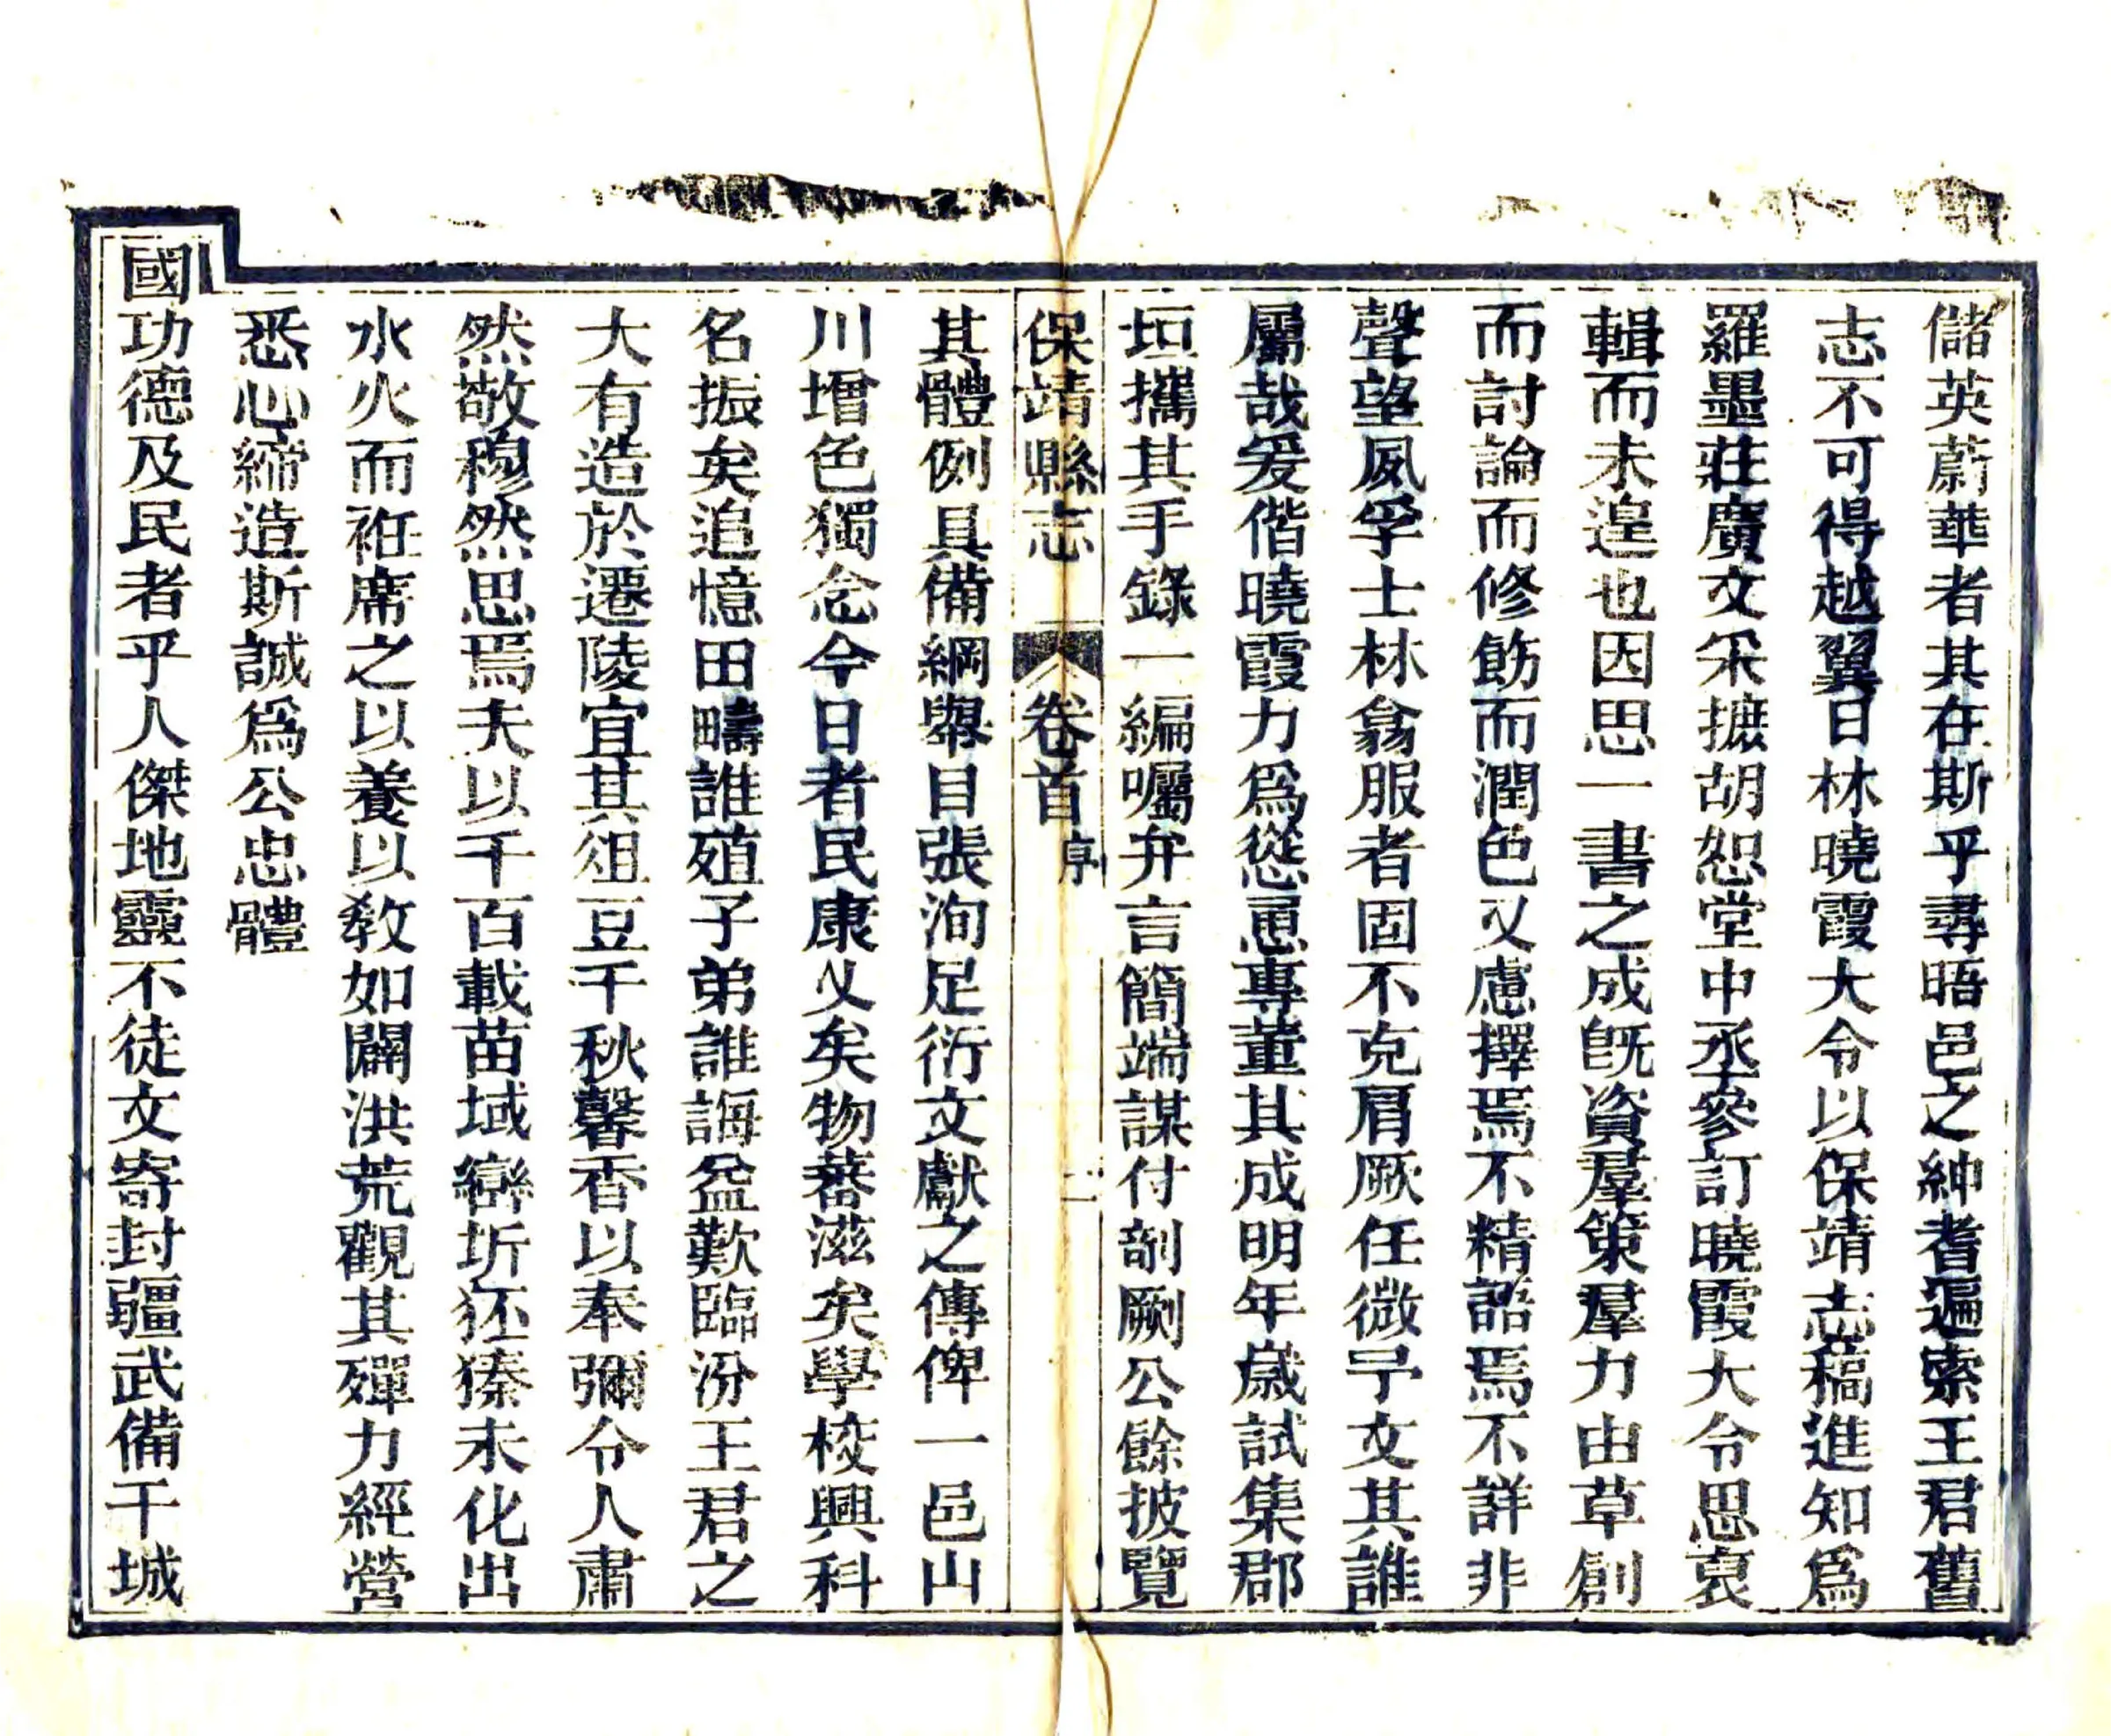 儲英蔚華者其在斯乎尋晤邑之紳耆遍索王君舊
志不可得越翼日林曉霞大令以保靖志稿進知爲
羅墨莊廣文采摭胡恕堂中丞參訂曉霞大令思裒
輯而未遑也因思一書之成旣資羣策羣力由草創
而討論而修飭而潤色又慮擇焉不精語焉不詳非
聲望夙孚士林翕服者固不克肩厥任微予文其誰
屬哉爰偕曉霞力爲慫恿專董其成明年歲試集郡
垣攜其手錄一編囑弁言簡端謀付剞劂公餘披覽
保靖縣志 卷首 序 二
其體例具備綱舉目張洵足衍文獻之傳俾一邑山
川增色獨念今日者民康乂矣物蕃滋矣學校興科
名振矣追憶田疇誰殖子弟誰誨益歎臨汾王君之
大有造於遷陵宜其俎豆千秋馨香以奉彌令人肅
然敬穆然思焉夫以千百載苗域巒圻狉獉未化出
水火而袵席之以養以敎如闢洪荒觀其殫力經營
悉心締造斯誠爲公忠體
國功德及民者乎人傑地靈不徒文寄封疆武備干城